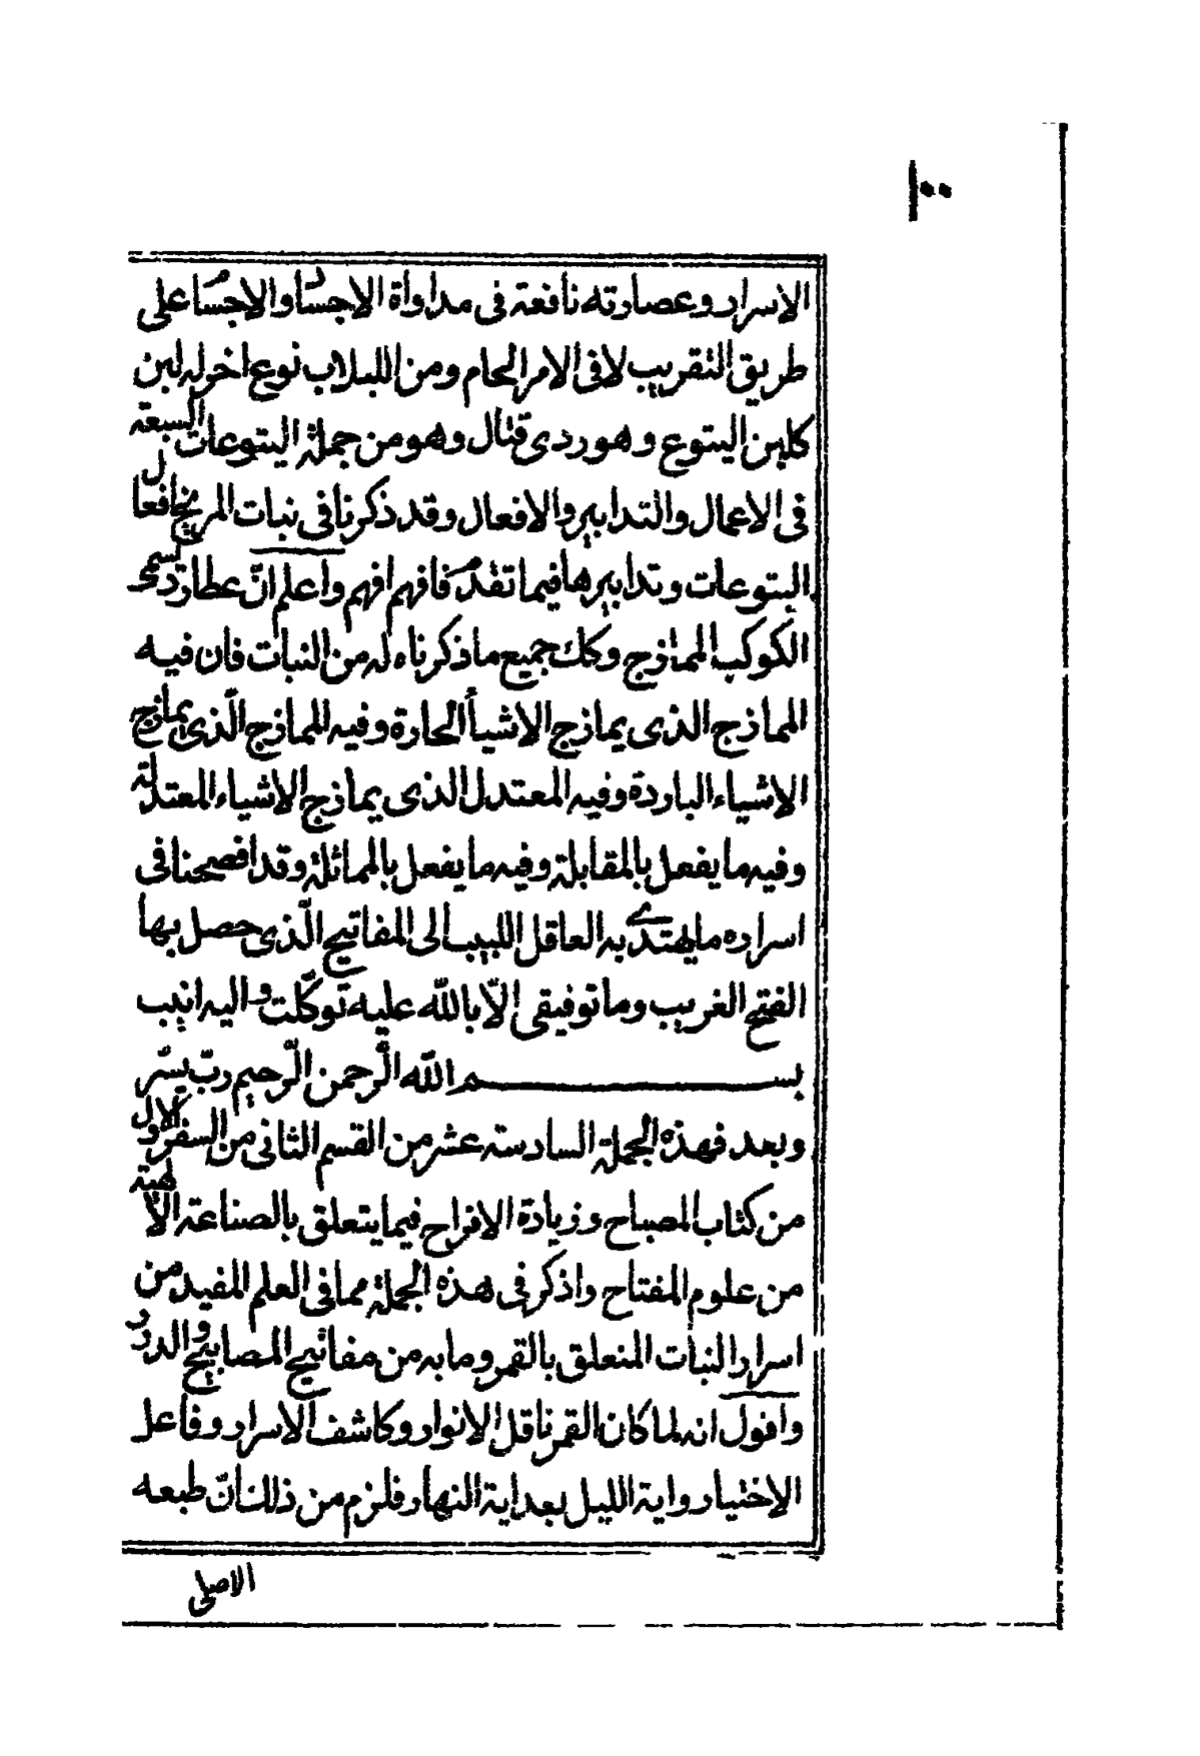 ١٠٠
الاسرار وعصارته نافعة فى مداواة الاجساد والاجسام على
طريق التقريب لا فى الامر الحام ومن اللبلاب نوع اخر له لبن
كلبن اليتوع وهو ردى قتال وهو من جملة اليتوعات السبعة
فى الاعمال والتدابير والافعال وقد ذكرنا فى نبات المريخ افعال
اليتوعات وتدابيرها فيما تقدم فافهم افهم واعلم انّ عطارد تسمى
الكوكب الممازج وكك جميع ما ذكرناه له من النبات فان فيه
الممازج الذى يمازج الاشيأ الحارة وفيه الممازج الّذى يمازج
الاشياء الباردة وفيه المعتدل الذى يمازج الاشياء المعتدلة
وفيه ما يفعل بالمقابلة وفيه ما يفعل بالمماثلة وقد افصحنا فى
اسراره ما يهتدى به العاقل اللبيب الى المفاتيح الّذى حصل بها
الفتح الغريب وما توفيقى الّا باللّه عليه توكّلت و اليه انيب
بسم اللّه الرّحمن الرّحيم ربّ يسّر
وبعد فهذه الجملة السادسة عشر من القسم الثانى من السفر الاول
من كتاب المصباح وزيادة الافراح فيما يتعلق بالصناعة الالهية
من علوم المفتاح واذكر فى هذه الجملة مما فى العلم المفيد من
اسرار النبات المتعلق بالقمر وما به من مفاتيح المصابيح والدرر
واقول انه لما كان القمر ناقل الانوار وكاشف الاسرار وفاعل
الاختيار واية الليل بعد اية النهار فلزم من ذلك انّ طبعه
الاصلى